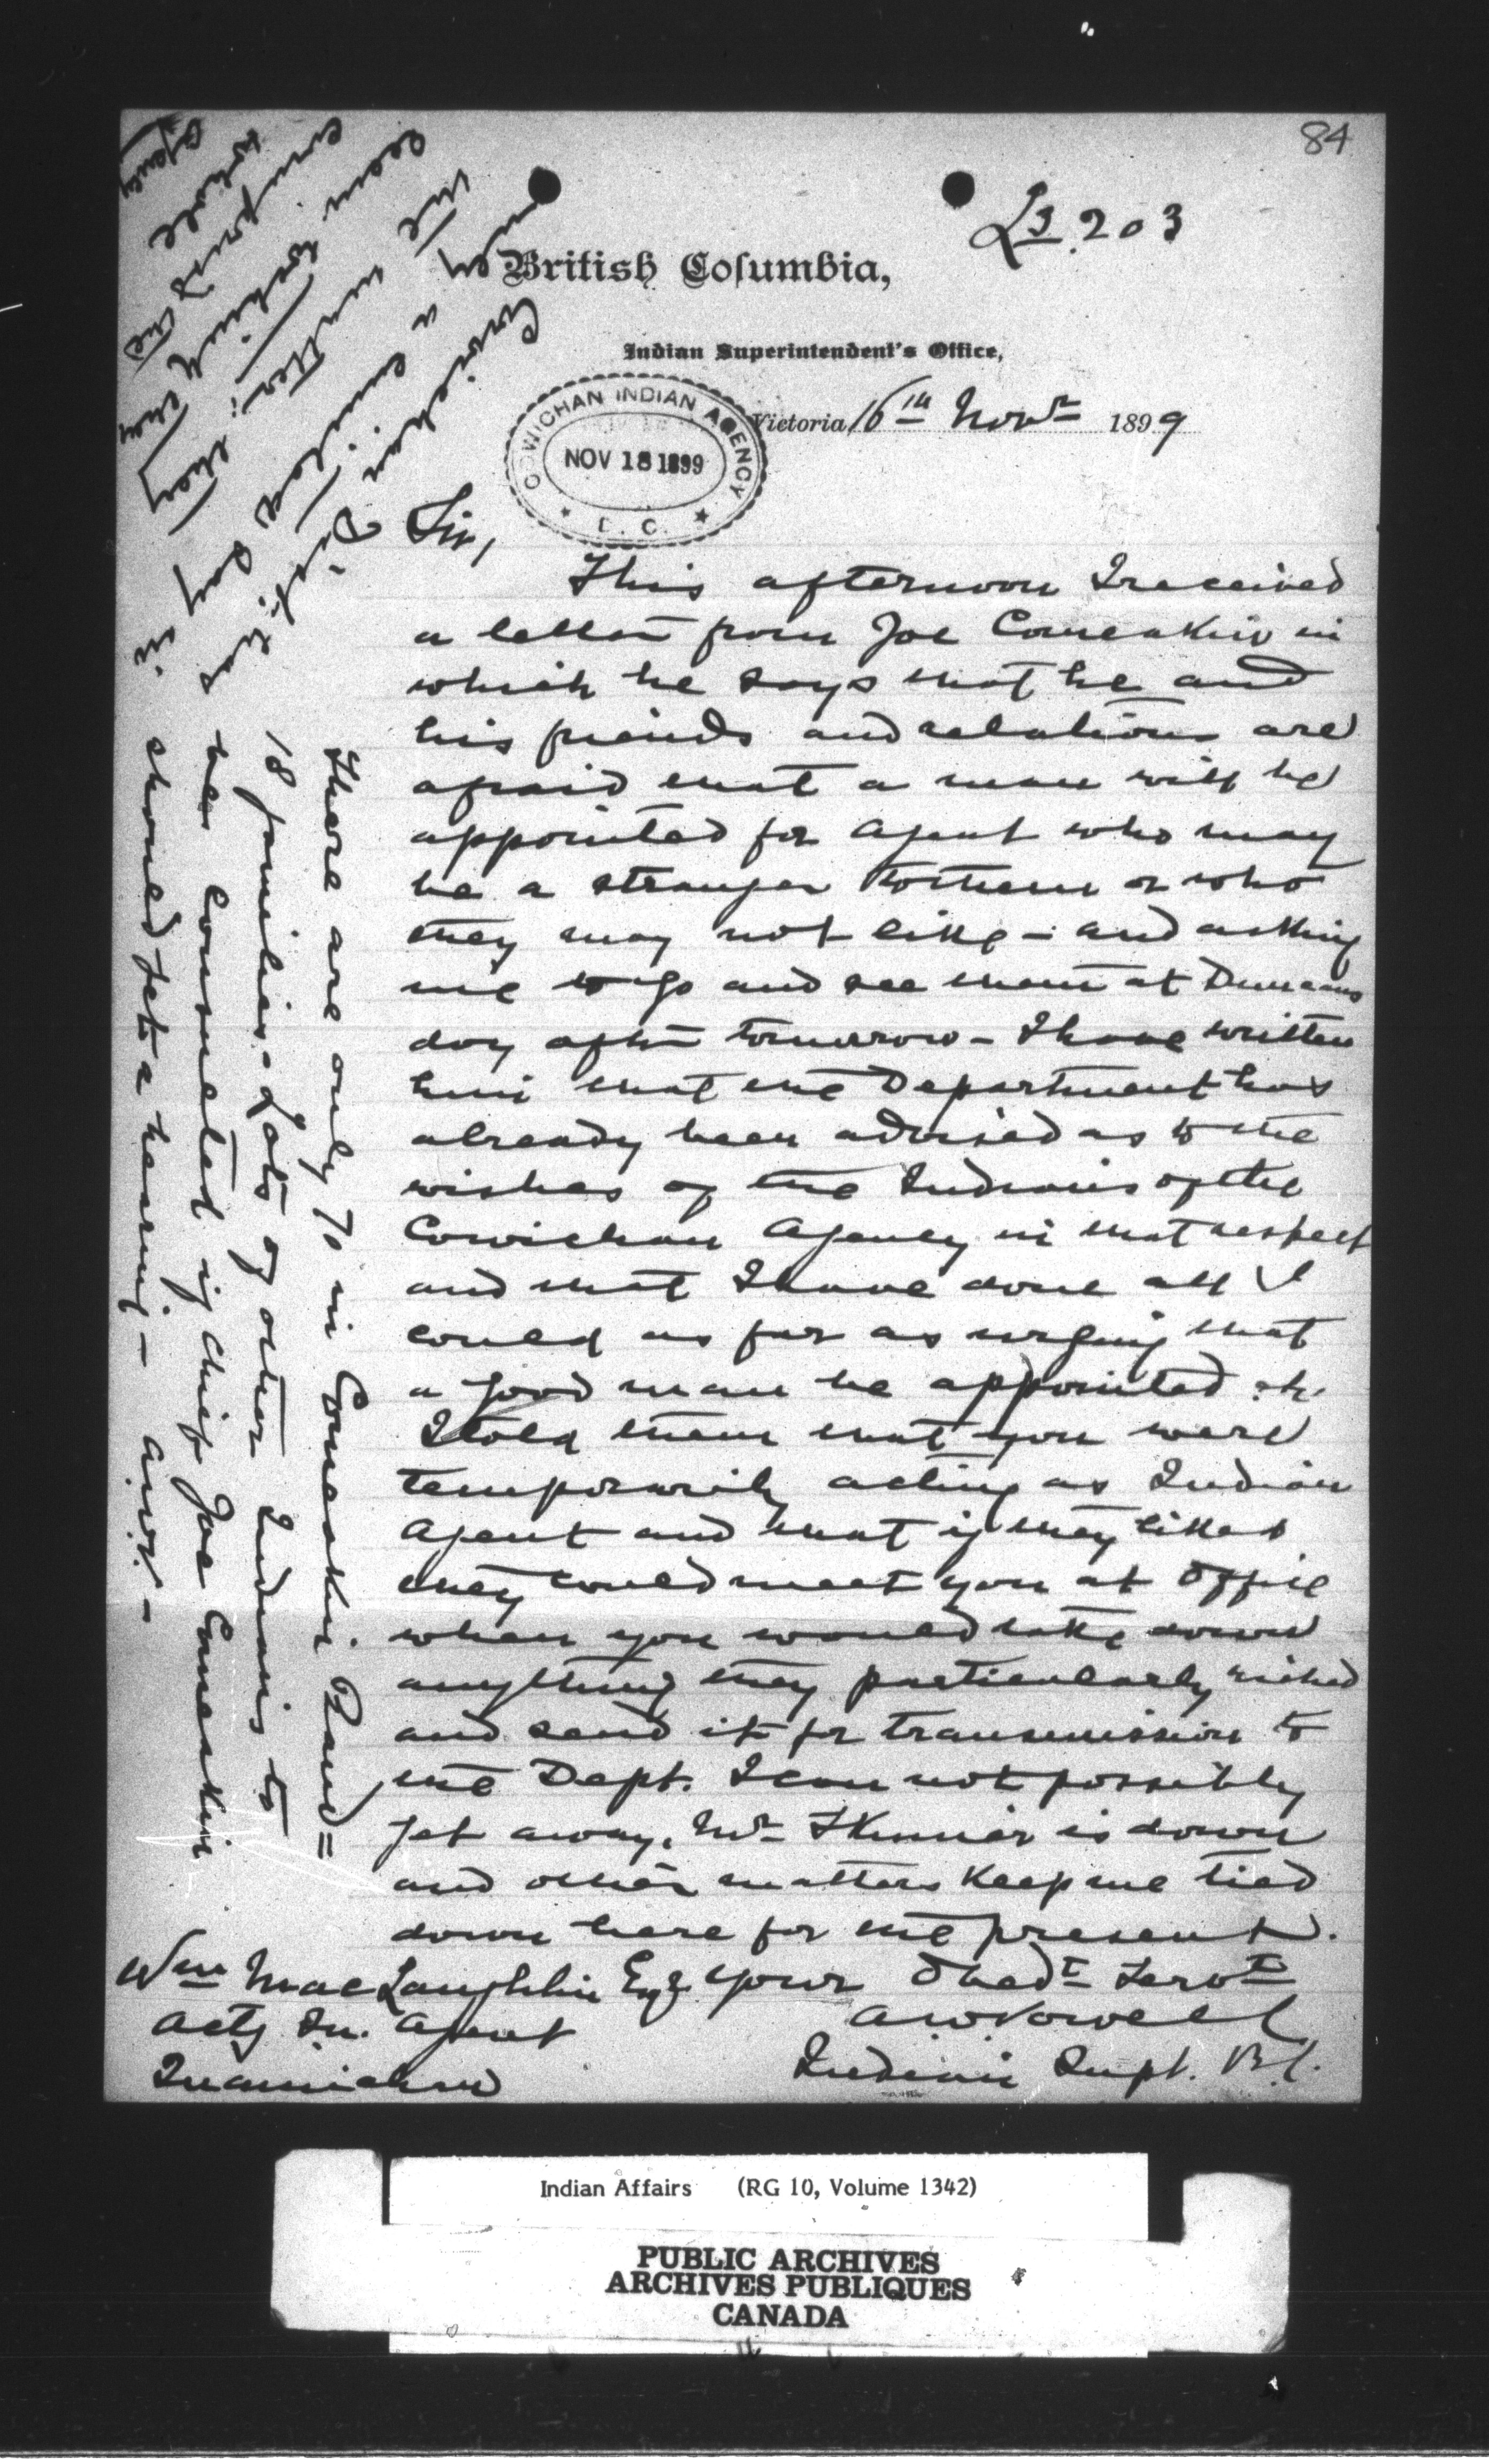 84
L3. 203
British Columbia,
Indian Superintendent's Office,
Victoria 16th Novr 1899
COWICHAN INDIAN AGENCY
NOV 18 1899
B. C.
Sir,
This afternoon I received
a letter from Joe Comeakin in
which he says that he and
his friends and relations are
afraid that a man will be
appointed for Agent who may
be a stranger to them or who
they may not like - and asking
me to go and see them at Duncans
day after tomorrow - I have written
him that the Department has
already been advised as to the
wishes of the Indians of the
Cowichan Agency in that respect
and that I have done all I
could as far as urging that
a good man be appointed &c.
I told them that you were
temporarily acting as Indian
Agent and that if they liked
they could meet you at office
when you would take down
anything they particularly wished
and send it for transmission to
the Dept. I can not possibly
get away, Mr
is down
and other matters keep me tied
down here for the present.
Your Obedt Servt
A W Vowell
Indian Supt. B.C.
Wm MacLaughlin Esq
Actg In. Agent
Quamichan
There are only 70 in Comeakin Band =
18 families - Lots of other Indians to
be consulted if Chief Joe Comeakin
should get a hearing -
Cowichan Dist. has
a
say in
the matter: they
seem to think they
comprise the
whole
Agency
Indian Affairs (RG 10, Volume 1342)
PUBLIC ARCHIVES
ARCHIVES PUBLIQUES
CANADA